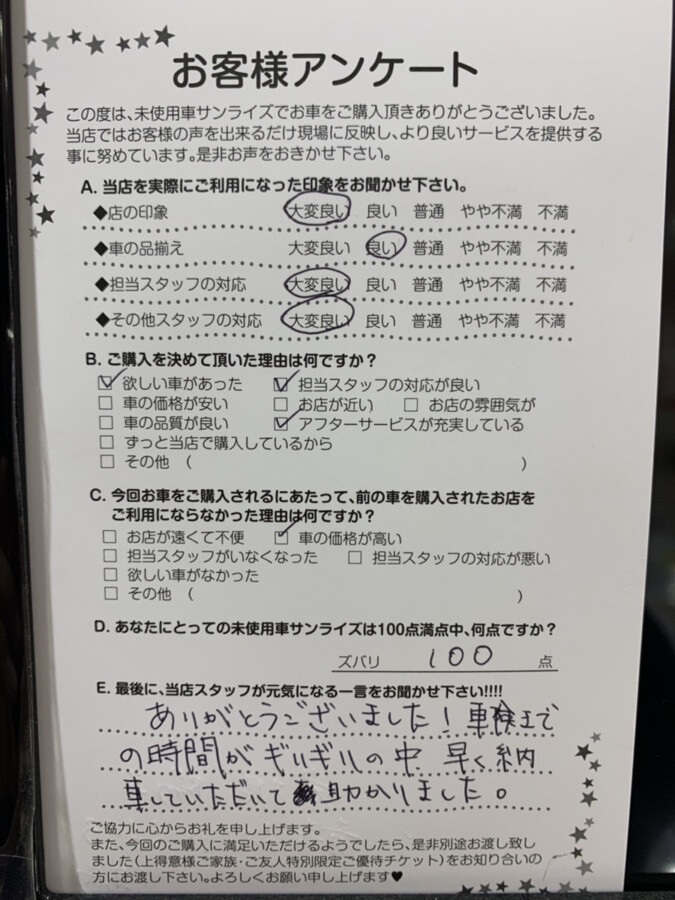 お客様アンケート
この度は、未使用車サンライズでお車をご購入頂きありがとうございました。
当店ではお客様の声を出来るだけ現場に反映し、より良いサービスを提供する
事に努めています。是非お声をおきかせ下さい。
A. 当店を実際にご利用になった印象をお聞かせ下さい。
◆店の印象 大変良い 良い 普通 やや不満 不満
◆車の品揃え 大変良い 良い 普通 やや不満 不満
◆担当スタッフの対応 大変良い 良い 普通 やや不満 不満
◆その他スタッフの対応 大変良い 良い 普通 やや不満 不満
B. ご購入を決めて頂いた理由は何ですか？
☑ 欲しい車があった ☑ 担当スタッフの対応が良い
□ 車の価格が安い □ お店が近い □ お店の雰囲気が
□ 車の品質が良い ☑ アフターサービスが充実している
□ ずっと当店で購入しているから
□ その他 （ ）
C. 今回お車をご購入されるにあたって、前の車を購入されたお店を
ご利用にならなかった理由は何ですか？
□ お店が遠くて不便 ☑ 車の価格が高い
□ 担当スタッフがいなくなった □ 担当スタッフの対応が悪い
□ 欲しい車がなかった
□ その他 （ ）
D. あなたにとっての未使用車サンライズは100点満点中、何点ですか？
ズバリ 100 点
E. 最後に、当店スタッフが元気になる一言をお聞かせ下さい!!!!
ありがとうございました！車検まで
の時間がギリギリの中、早く納
車していただいて助かりました。
ご協力に心からお礼を申し上げます。
また、今回のご購入に満足いただけるようでしたら、是非別途お渡し致し
ました(上得意様ご家族・ご友人特別限定ご優待チケット)をお知り合いの
方にお渡し下さい。よろしくお願い申し上げます♥